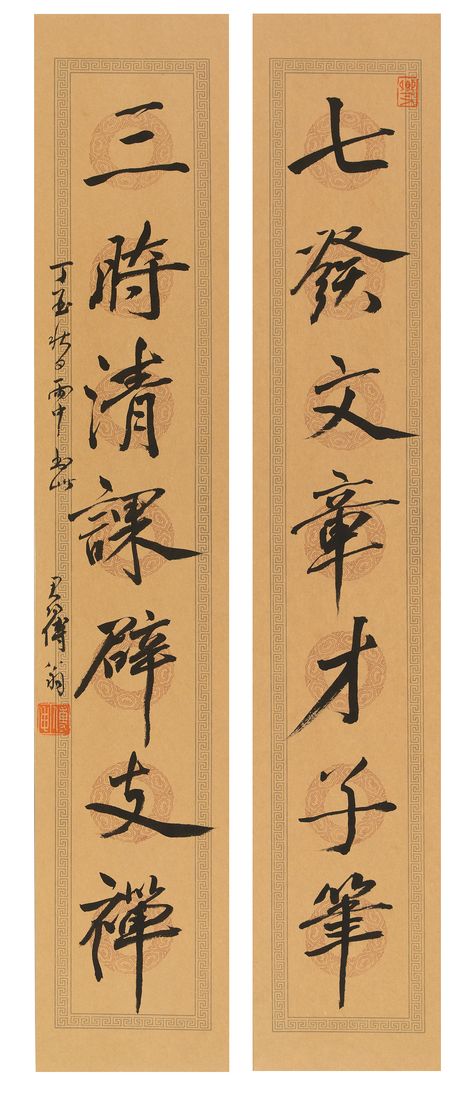 七發文章才子筆
三時清課辟支禪
丁 秋日雨中